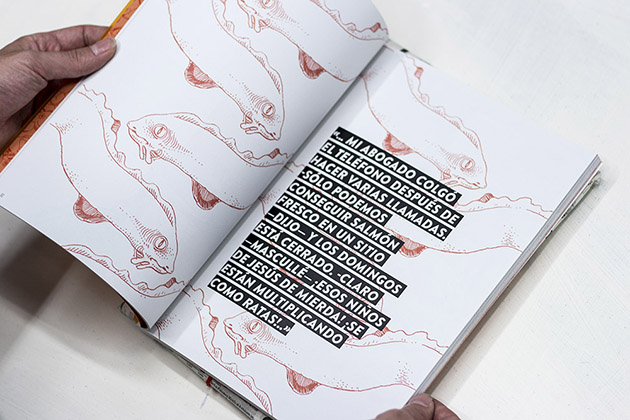 "... MI ABOGADO COLGÓ
EL TELÉFONO DESPUÉS DE
HACER VARIAS LLAMADAS.
SÓLO PODEMOS
CONSEGUIR SALMÓN
FRESCO EN UN SITIO
DIJO—Y LOS DOMINGOS
ESTÁ CERRADO. -CLARO
MASCULLÉ—¡ESOS NIÑOS
DE JESÚS DE MIERDA! ¡SE
ESTÁN MULTIPLICANDO
COMO RATAS!..."